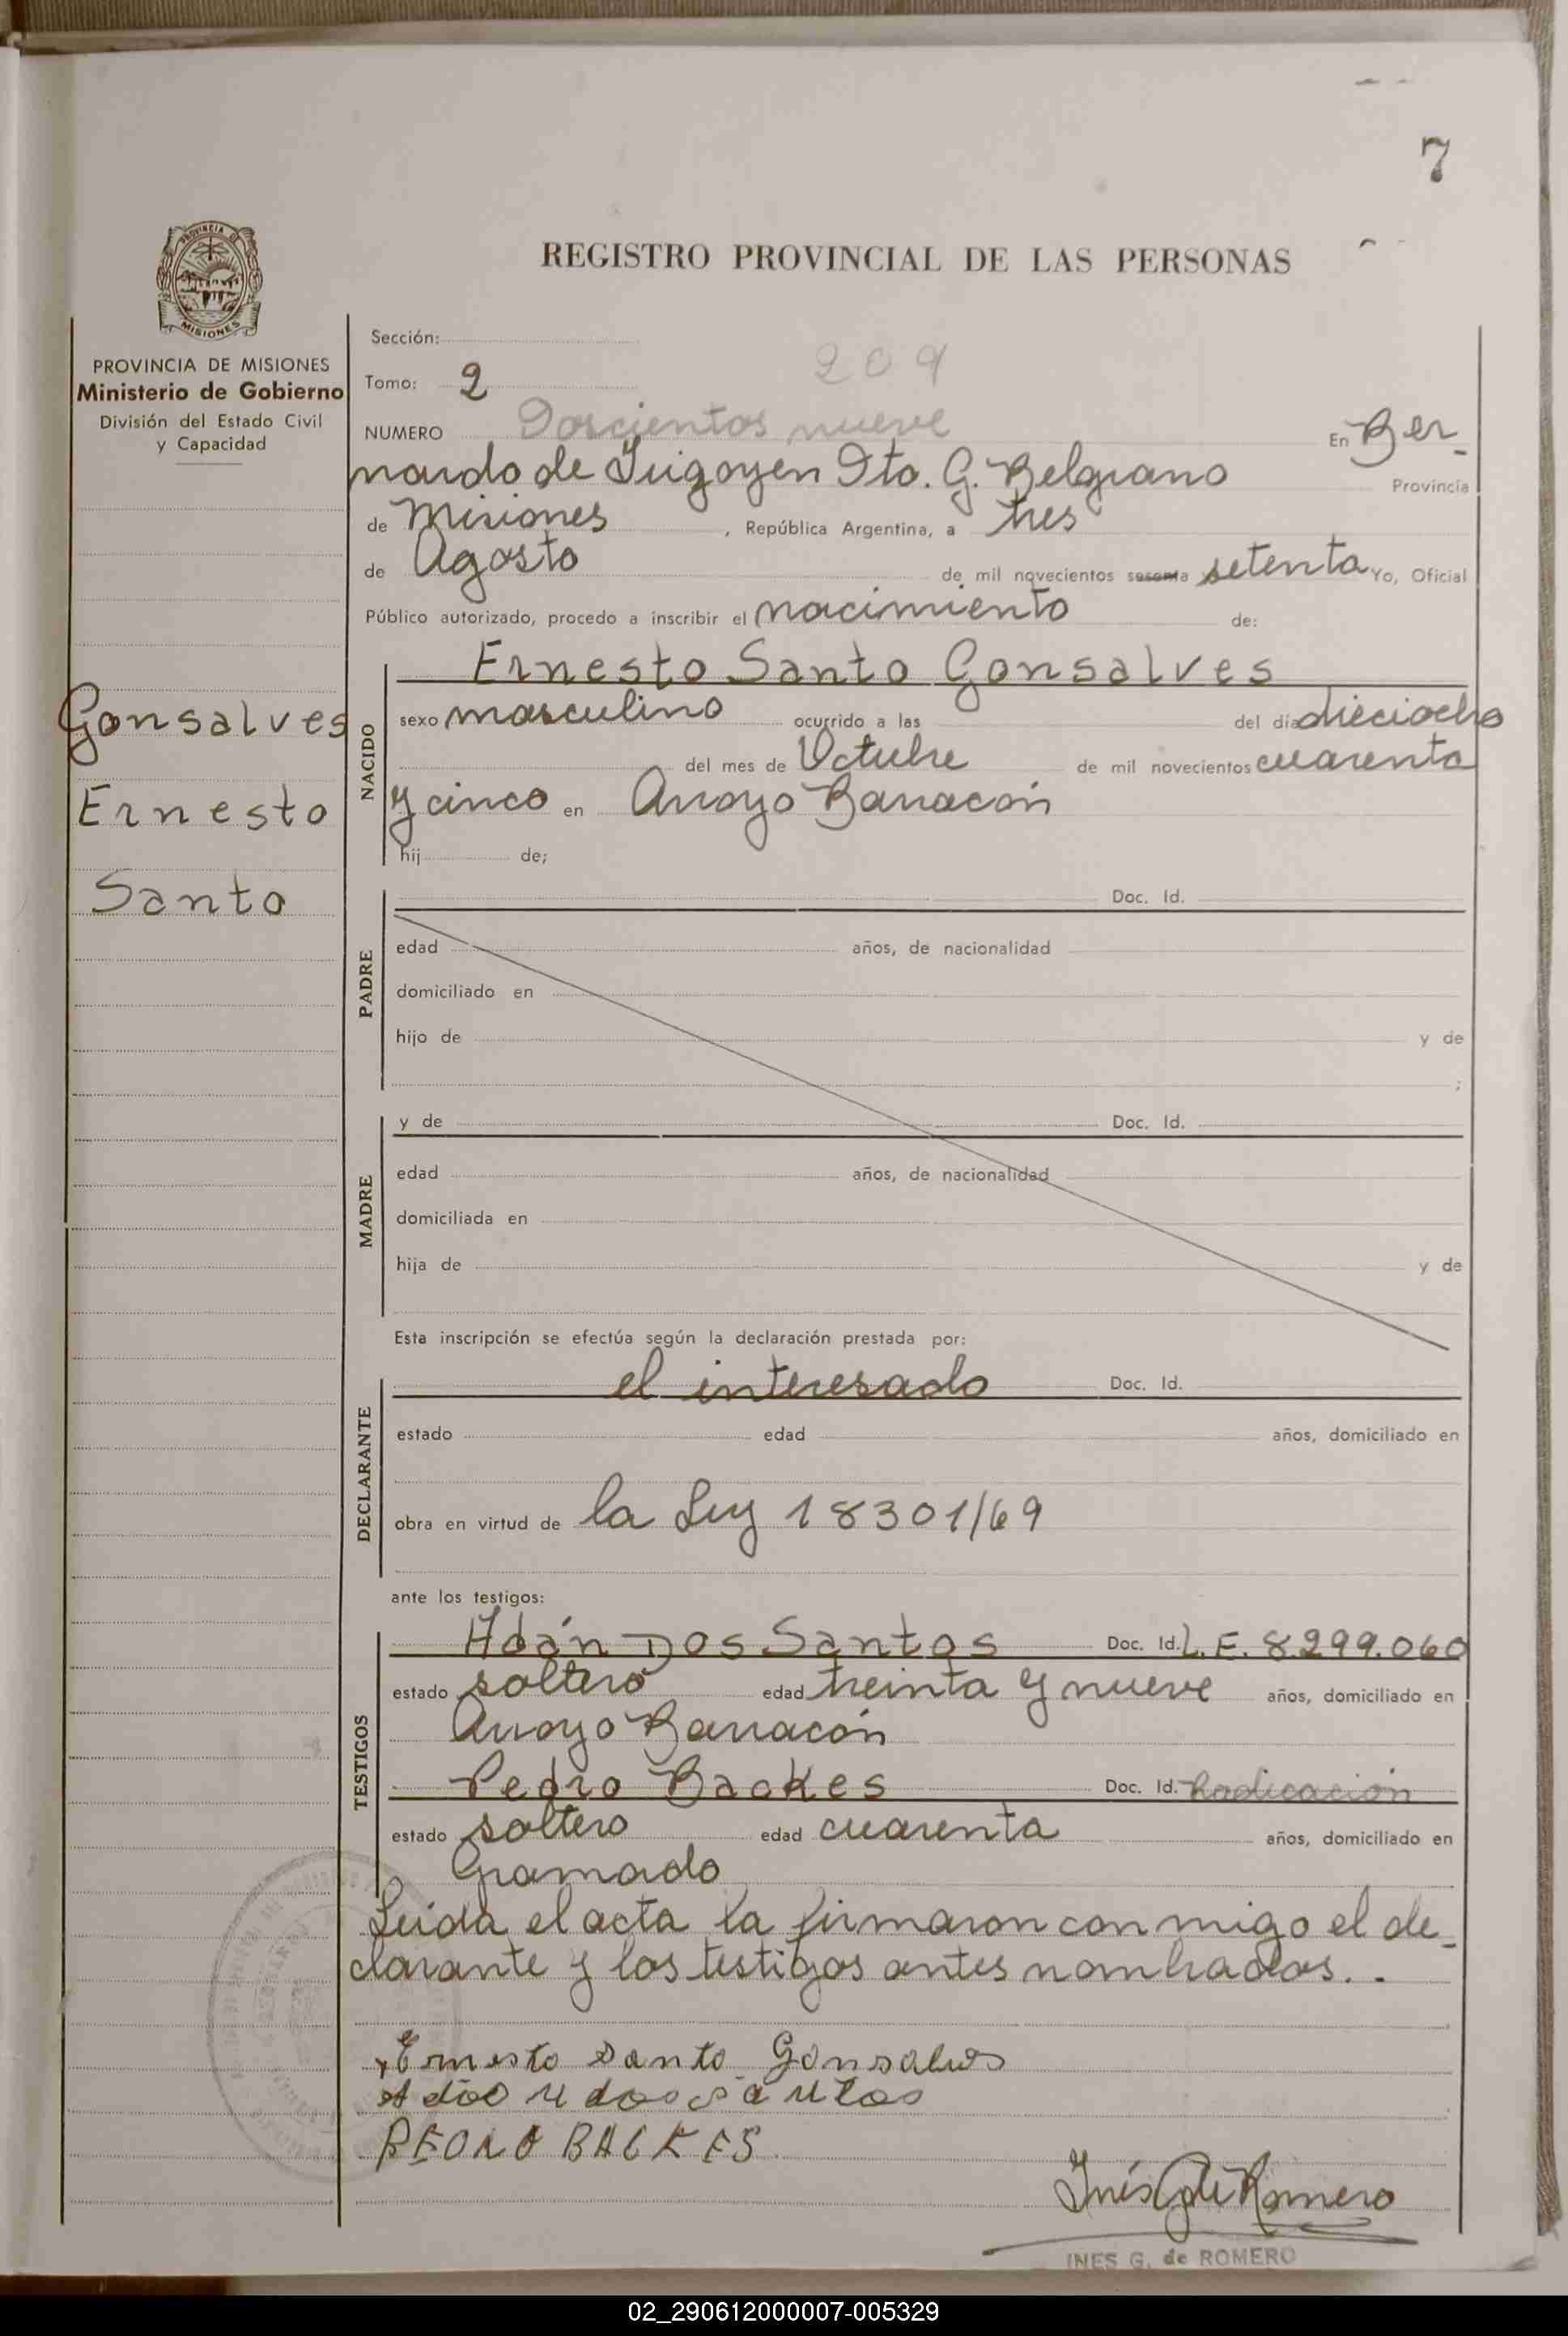 7
REGISTRO PROVINCIAL DE LAS PERSONAS
PROVINCIA DE MISIONES
Ministerio de Gobierno
División del Estado Civil
y Capacidad
Gonsalves
Ernesto
Santo
Sección:
209
Tomo: 2
NUMERO Doscientos nueve En Ber-
nardo de Irigoyen Dto. G. Belgrano Provincia
de Misiones, República Argentina, a tres
de Agosto de mil novecientos sesenta setenta Yo, Oficial
Público autorizado, procedo a inscribir el nacimiento de:
NACIDO
Ernesto Santo Gonsalves
sexo masculino ocurrido a las del día dieciocho
del mes de Octubre de mil novecientos cuarenta
y cinco en Arroyo Barracón
hij de;
PADRE
Doc. Id.
edad años, de nacionalidad
domiciliado en
hijo de y de
;
MADRE
y de Doc. Id.
edad años, de nacionalidad
domiciliada en
hija de y de
Esta inscripción se efectúa según la declaración prestada por:
DECLARANTE
el interesado Doc. Id.
estado edad años, domiciliado en
obra en virtud de la Ley 18301/69
ante los testigos:
TESTIGOS
Adán Dos Santos Doc. Id. L.E. 8.299.060
estado soltero edad treinta y nueve años, domiciliado en
Arroyo Barracón
Pedro Backes Doc. Id. Radicación
estado soltero edad cuarenta años, domiciliado en
Gramado
Leída el acta la firmaron conmigo el de-
clarante y los testigos antes nombrados..
Ernesto Santo Gonsalves
PEDRO BACKES
Inés G de Romero
INES G. de ROMERO
02_290612000007-005329